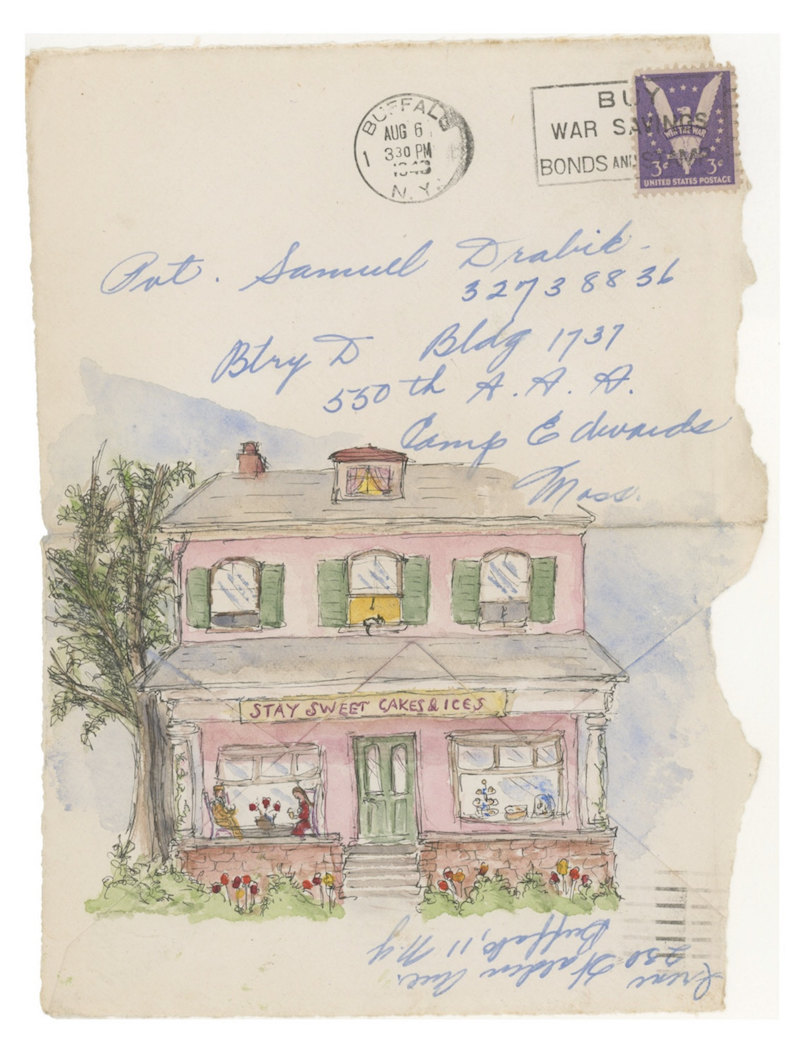 BUFFALO
AUG 6
1 330 PM
1943
N.Y.
BUY
WAR SAVINGS
BONDS AND STAMPS
WIN THE WAR
3¢ 3¢
UNITED STATES POSTAGE
Pvt. Samuel Drabik
32738836
Btry D Bldg 1737
550th A.A.A.
Camp Edwards
Mass.
STAY SWEET CAKES & ICES
Irene
230 Walden Ave.
Buffalo, 11 N.Y